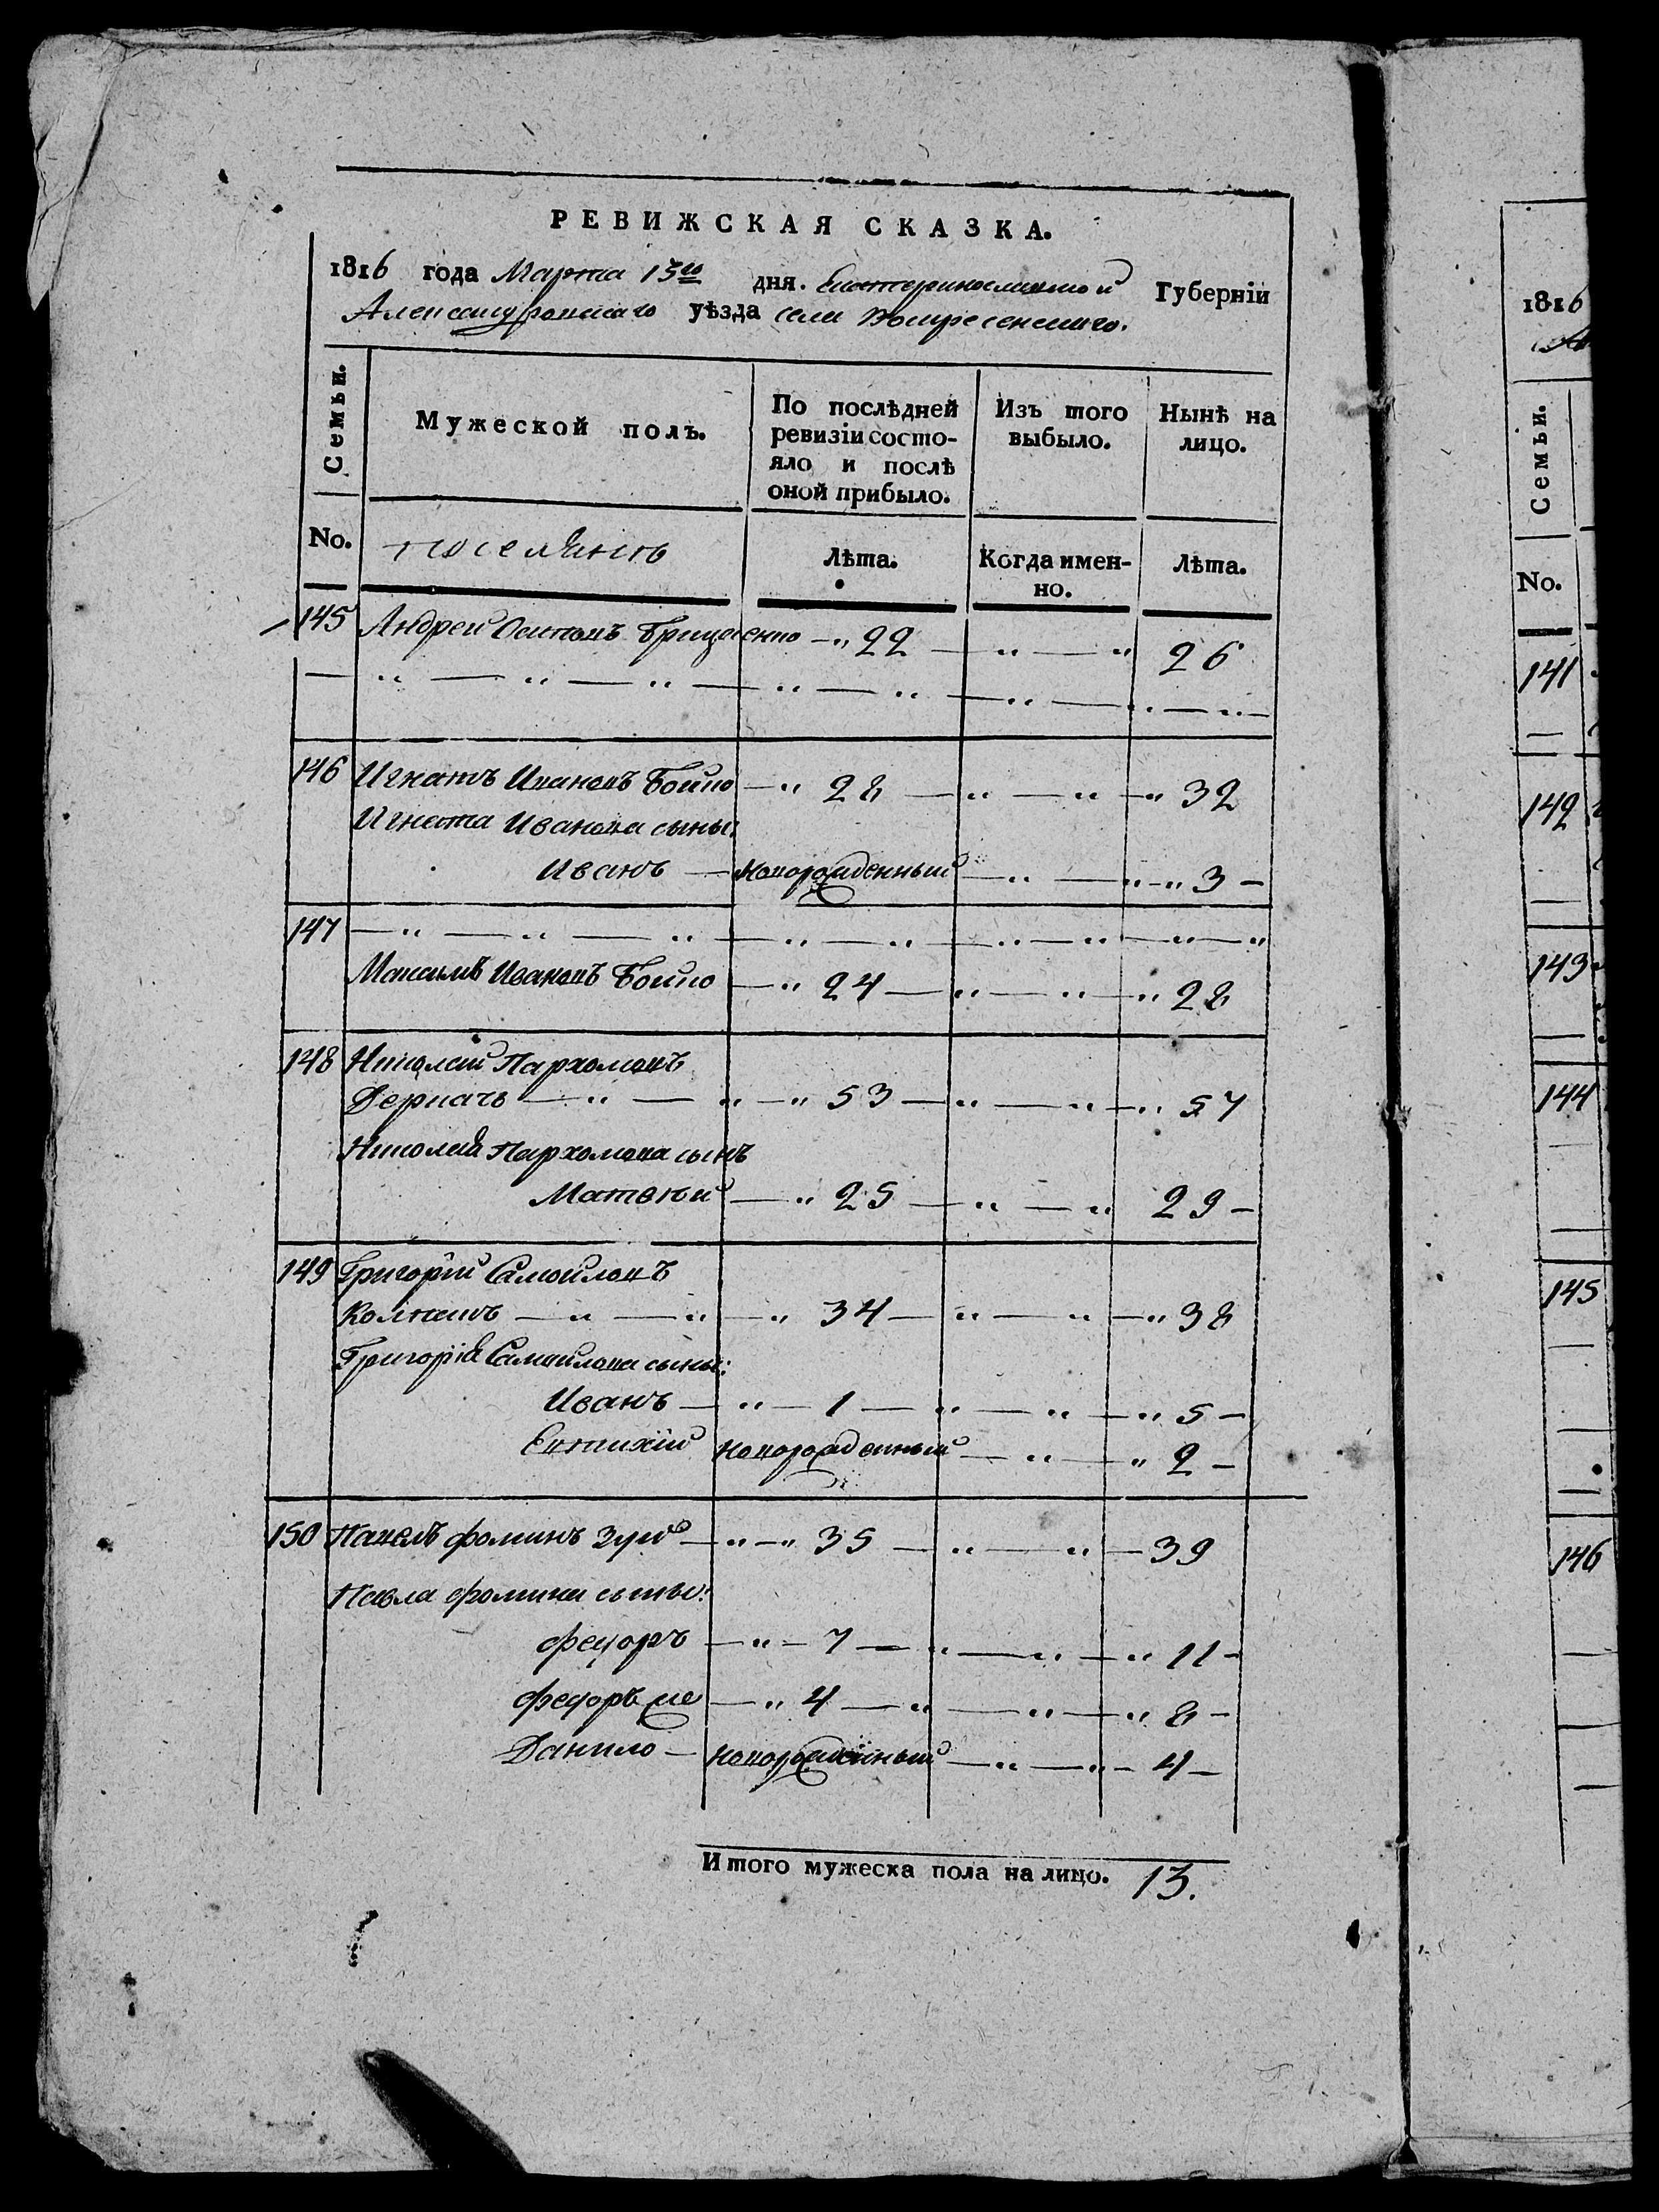 РЕВИЖСКАЯ СКАЗКА.
1816 года Марта 15го дня. Екатеринославской Губерніи
Александровскаго уѣзда села Воскресенскаго.
Семьи. Мужеской полъ. По послѣдней ревизіи состояло и послѣ оной прибыло. Изъ того выбыло. Нынѣ на лицо.
No. поселянъ Лѣта. Когда именно. Лѣта.
145 Андрей Осиповъ Грицаенко — " 22 — " — " 26
— " — " — " — " — " — " — " — " —
146 Игнатъ Ивановъ Бойко — " 28 — " — " — " 32
Игната Иванова сынъ:
Иванъ — новорожденный — " — " — " 3 —
147 — " — " — " — " — " — " — " — " — "
Максимъ Ивановъ Бойко — " 24 — " — " — " 28
148 Николай Пархомовъ
Деркачь — " — " — " 53 — " — " — " 57
Николая Пархомова сынъ
Матвѣй — " 25 — " — " 29 —
149 Григорій Самойловъ
— " — " — " 34 — " — " — " 38
Григорія Самойлова сыны:
Иванъ — " — 1 — " — " — " 5 —
Евтихій новорожденный — " — " 2 —
150 Павелъ Фоминъ Зуй — " — " 35 — " — " — 39
Павла Фомина сыны:
Федоръ — " — 7 — " — " — " 11 —
Федоръ же — " 4 — " — " — " 8 —
Данило — новорожденный — " — " — 4 —
Итого мужеска пола на лицо. 13.
1816
Семьи.
No.
141
142
143
144
145
146